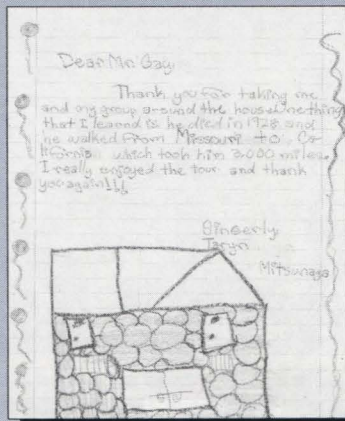 Dear Mr. Gay,
Thank you for taking me
and my group around the house. One thing
that I learned is he died in 1928 and
he walked from Missouri to Ca
lifornia which took him 2,000 miles.
I really enjoyed the tour and thank
you again!!!
Sincerly
Taryn
Mitsunaga